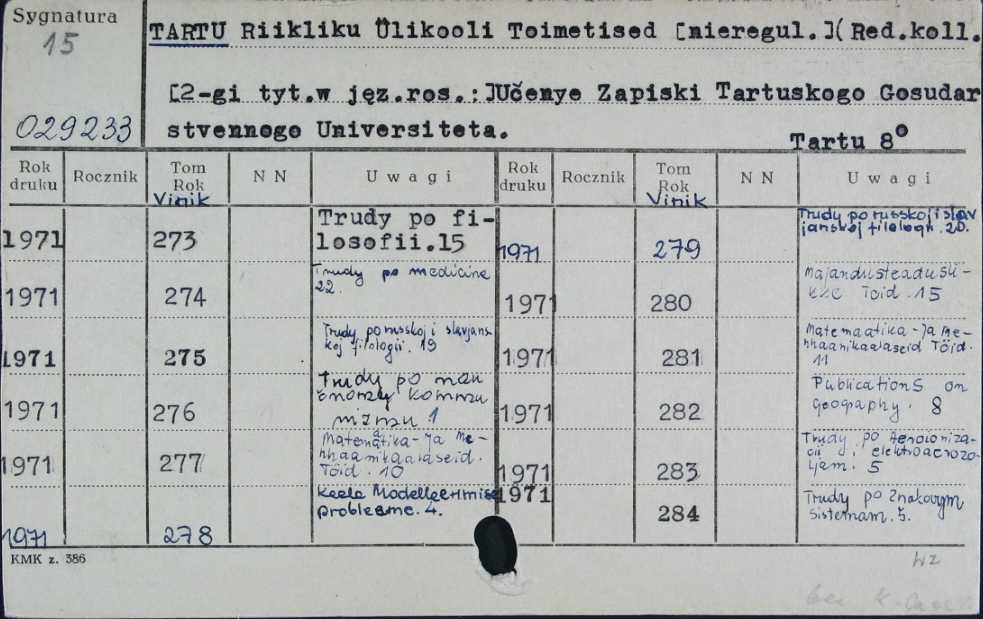 Sygnatura
15
TARTU Riikliku Ülikooli Toimetised [nieregul.](Red.koll.
[2-gi tyt.w jęz.ros.:]Učenye Zapiski Tartuskogo Gosudar
029233 stvennogo Universiteta.
Tartu 8°
Rok druku Rocznik Tom Rok NN Uwagi Rok druku Rocznik Tom Rok NN Uwagi
Vinik Vinik
1971 273 Trudy po fi-
losofii.15
1971 279 Trudy po russkoj i slav
janskoj filologii. 20.
1971 274 Trudy po medicine
22.
1971 280 Majandusteadusli-
kke Töid. 15
1971 275 Trudy po russkoj i slavjans
koj filologii. 19
1971 281 Matemaatika- ja Me-
hhaanikaalaseid Töid.
11
1971 276 Trudy po nau
čnomy kommu
nizmu 1
1971 282 Publications on
Geography. 8
1971 277 Matemaatika- ja Me-
hhaanikaalaseid.
Töid. 10
1971 283 Trudy po Aeroioniza-
cii i elektroaerozo-
ljam. 5
1971 278 Keele Modelleerimise
probleeme. 4.
1971 284 Trudy po Znakovym
Sistemam. 5.
KMK z. 386
Wz